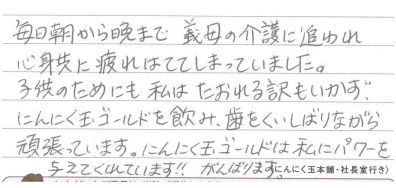 毎日朝から晩まで 義母の介護に追われ
心身共に疲れはててしまっていました。
子供のためにも 私は たおれる訳もいかず、
にんにく玉ゴールドを飲み、歯をくいしばりながら
頑張っています。にんにく玉ゴールドは私にパワーを
与えてくれています!! がんばります。
にんにく玉本舗・社長室行き)